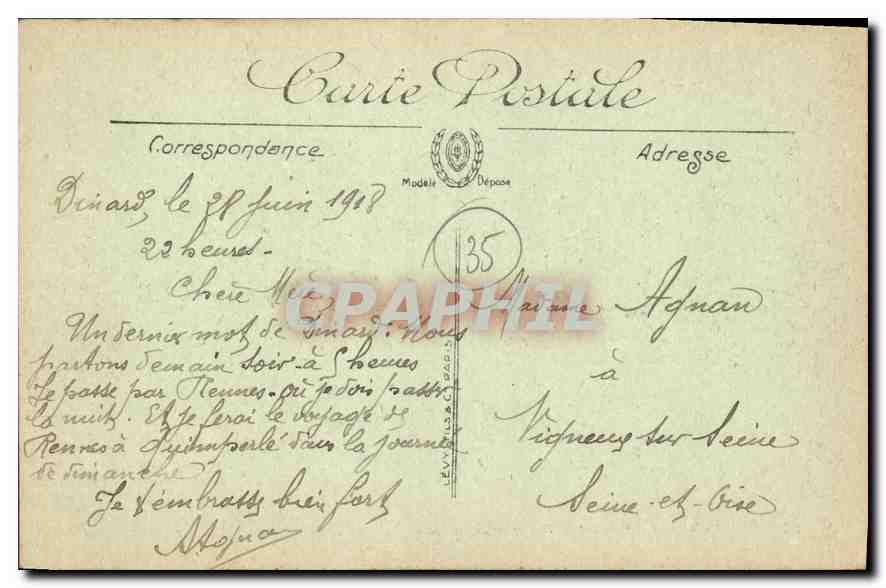 Carte Postale
Correspondance
Adresse
Modèle Déposé
Dinard, le 28 juin 1918
22 heures -
35
Chère Mère,
CPAPHIL
Madame Agnan
Un dernier mot de Dinard. Nous
partons demain soir à 5 heures
à
Je passe par Rennes - où je dois passer
la nuit. Et je ferai le voyage de
Vigneux sur Seine
Rennes à Quimperlé dans la journée
de dimanche
Seine-et-Oise
Je t'embrasse bien fort
LÉVY FILS & Cie PARIS